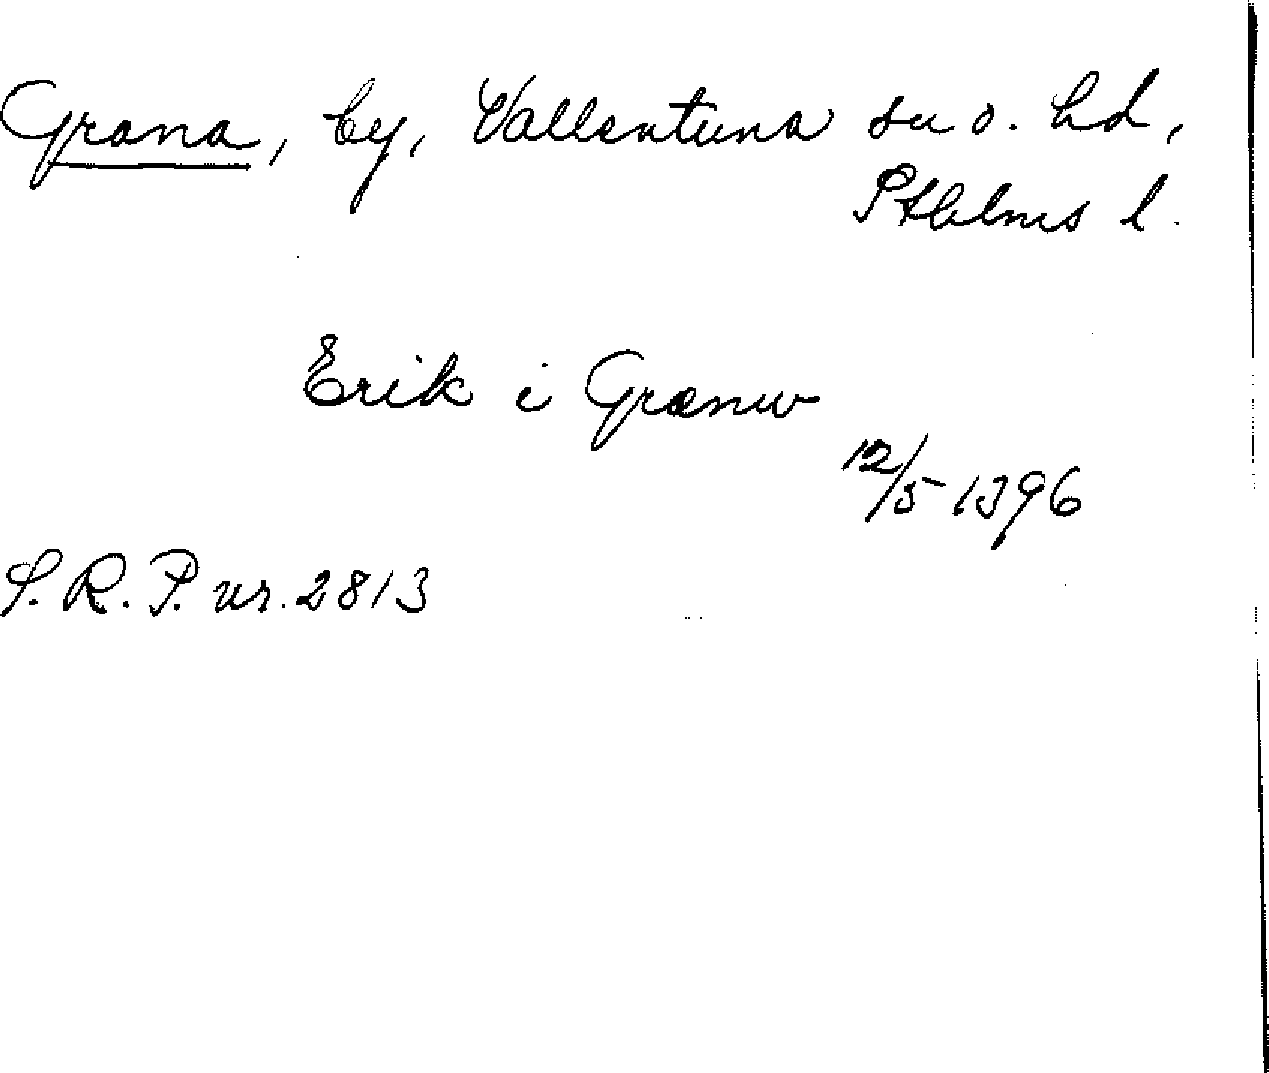 Grana, by, Vallentuna sn o. hd,
Sthlms l.
Erik i Grænw
12/5 1396
S. R. P. nr. 2813